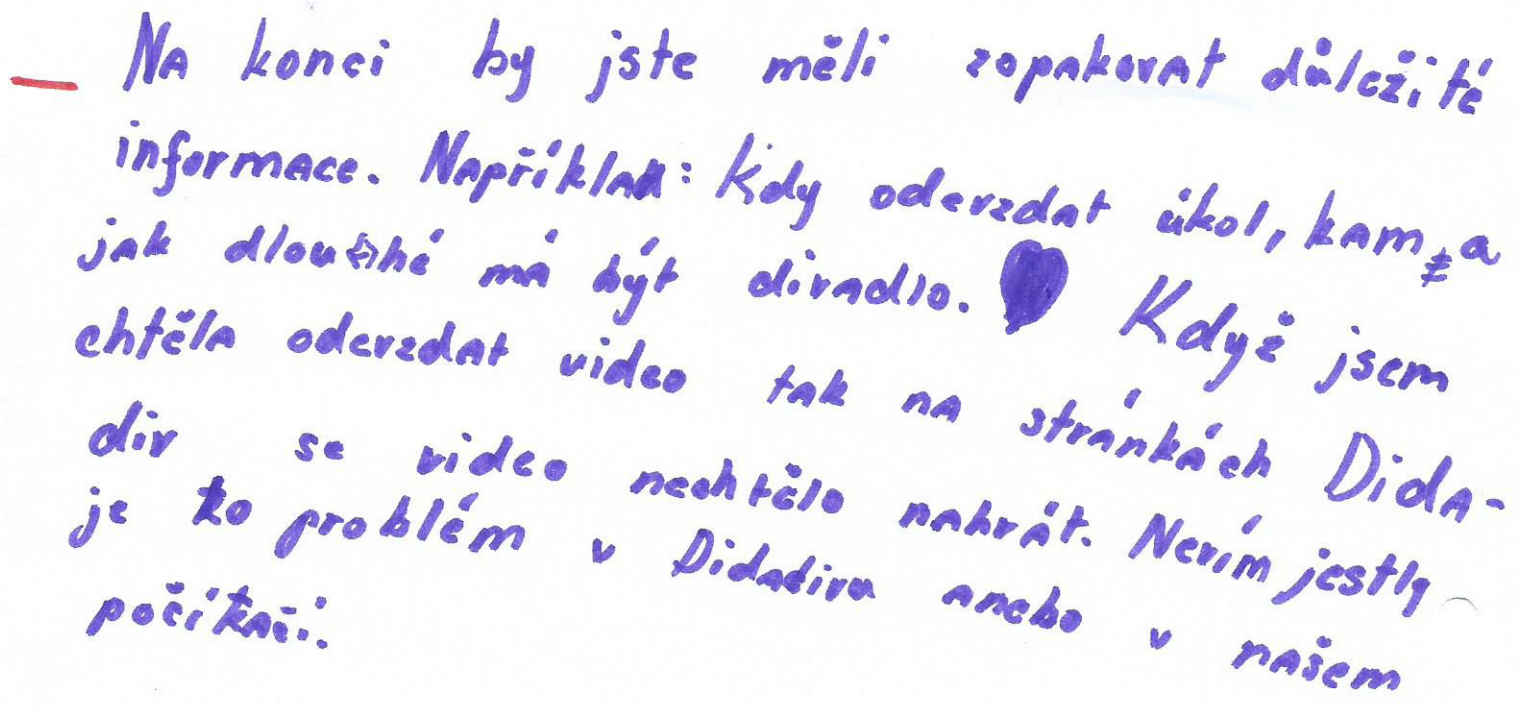 Na konci by jste měli zopakovat důležité
informace. Například: Kdy odevzdat úkol, kam a
jak dlouhé má být divadlo. Když jsem
chtěla odevzdat video tak na stránkách Dida-
div se video nechtělo nahrát. Nevím jestly
je to problém v Didadivu anebo v našem
počítači.